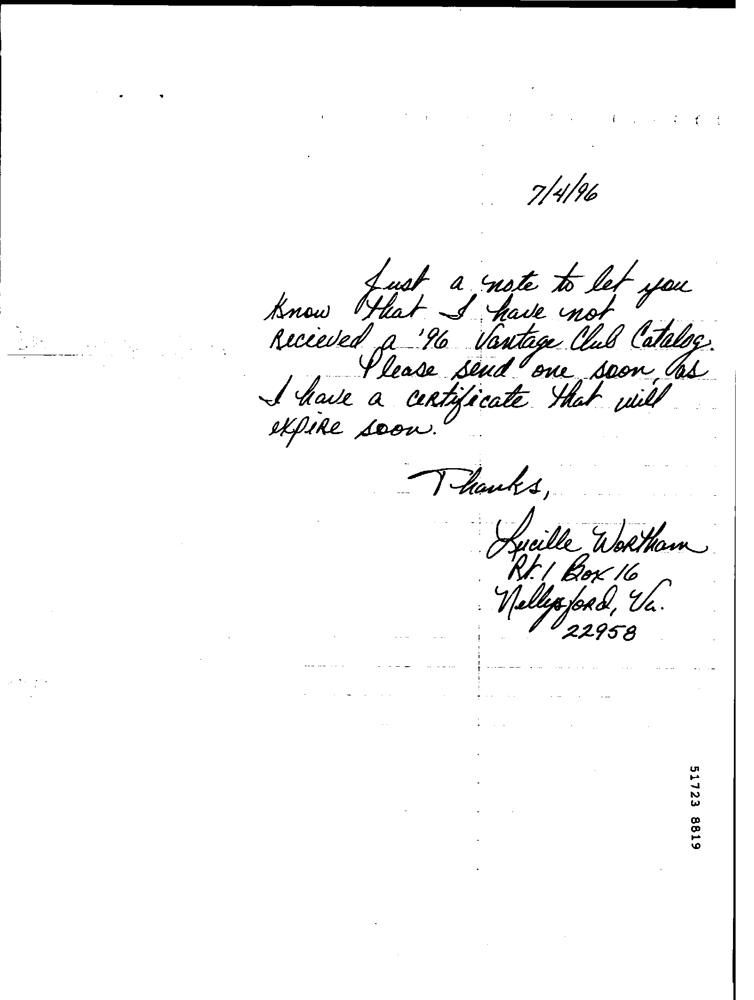 7/4/96
Just a note to let you
know that I have not
recieved a '96 Vantage Club Catalog.
Please send one soon, as
I have a certificate that will
expire soon.
Thanks,
Lucille Wortham
Rt. 1 Box 16
Nellysford, Va.
22958
51723 8819